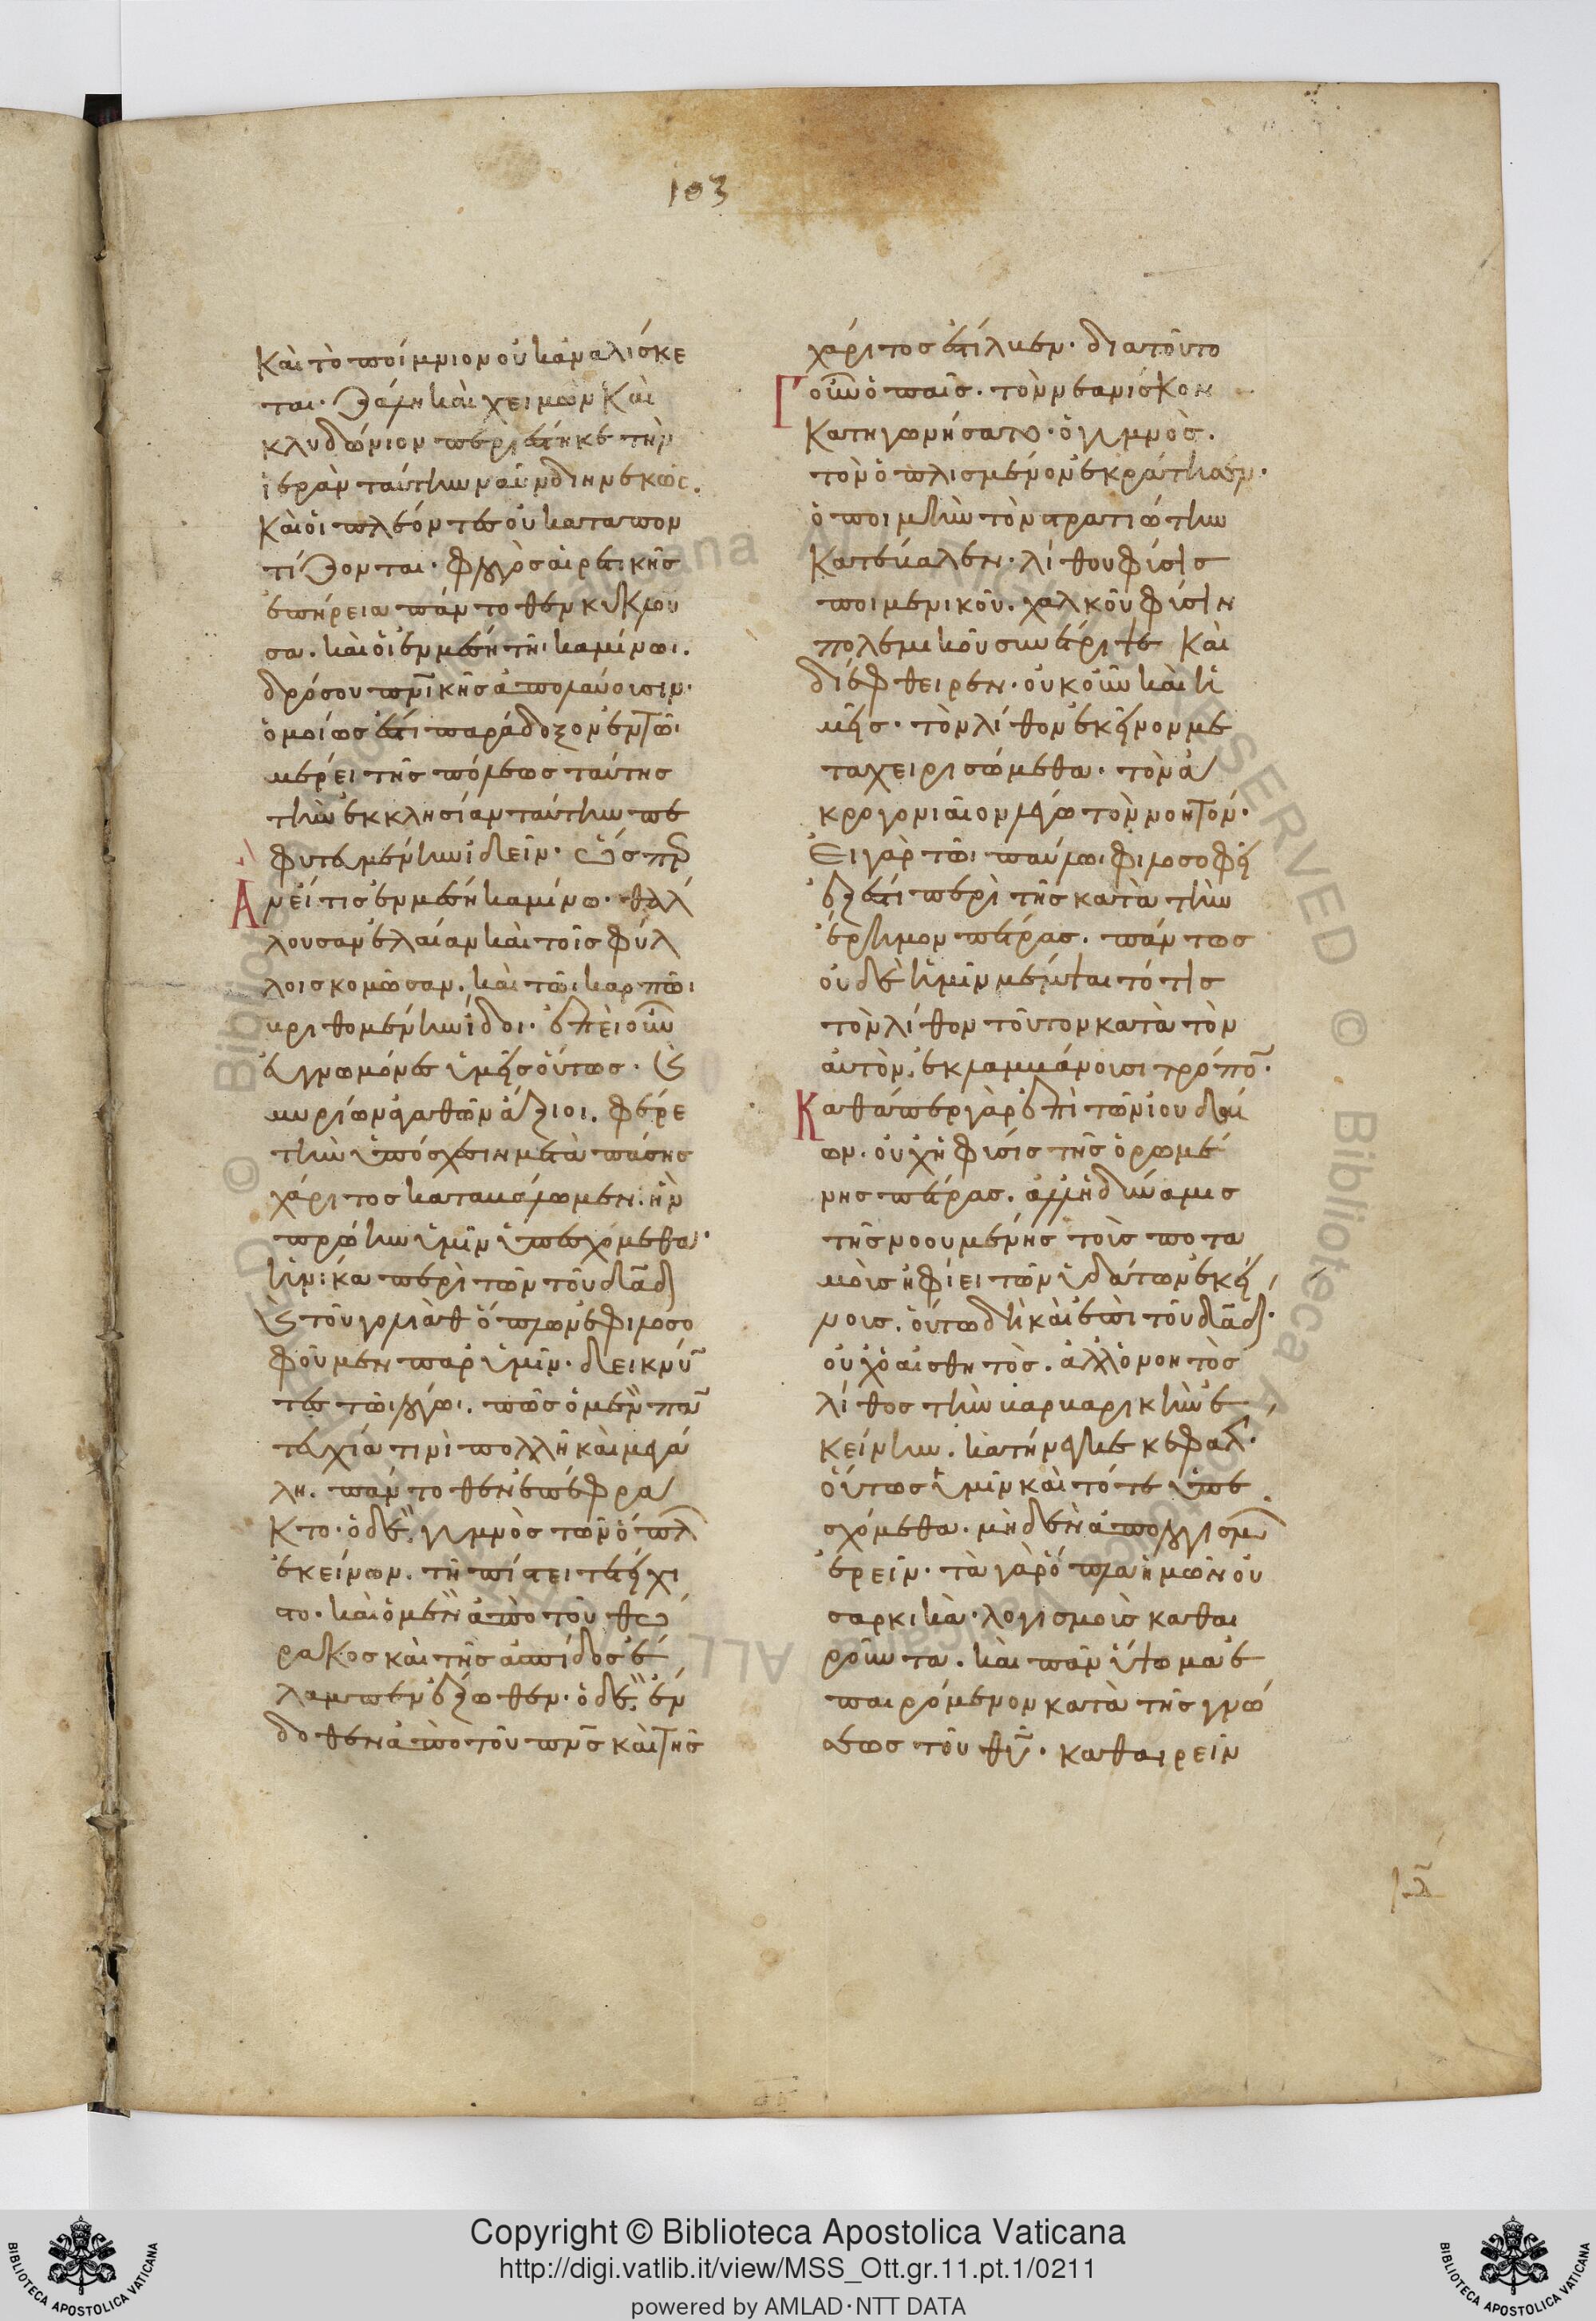 103
καὶ τὸ ποίμνιον οὐκ ἀναλίσκε
ται· ζάλη καὶ χειμὼν καὶ
κλυδώνιον περιέστηκε τὴν
ἱερὰν ταύτην ναῦν διηνεκῶς.
καὶ οἱ πλέοντες οὐ καταπον
τίζονται· φλὸξ αἱρετικῆς
ἐπήρεια πάντοθεν κυκλου
σα. καὶ οἱ ἐν μέση τῆι καμίνωι.
δρόσου πνικῆς ἀπολαύουσιν·
ὁμοίως ἐστὶ παράδοξον ἐν τῶι
μέρει τῆς πόλεως ταύτης
τὴν ἐκκλησίαν ταύτην πε
φυτευμένην ἰδεῖν· ὥσπερ
ἂν εἴ τις ἐν μέση καμίνω· θάλ
λουσαν ἐλαίαν καὶ τοῖς φύλ
λοις κομῶσαν. καὶ τῶι καρπῶι
βριθομένην ἴδοι· ἐπεὶ οὖν
εὐγνώμονες ὑμεῖς ὄντως· καὶ
μυρίων ἀγαθῶν ἄξιοι. φέρε
τὴν ὑπόσχεσιν μετὰ πάσης
χάριτος καταβάλωμεν. ἣν
πρώην ὑμῖν ὑπεσχόμεθα·
ἡνίκα περὶ τῶν τοῦ δαδ
καὶ τοῦ γολιὰθ ὅπλων ἐφιλοσο
φοῦμεν παρ ὑμῖν· δεικνύν
τες τῶι λόγωι. πῶς ὁ μὲν παν
τευχία τινὶ πολλῆ καὶ μεγά
λη. πάντοθεν ἐπέφρα
κτο· ὁ δὲ, γυμνὸς τῶν ὅπλων
ἐκείνων. τῆ πίστει τετείχι
το. καὶ ὁ μὲν ἀπὸ τοῦ θώ
ρακος καὶ τῆς ἀσπίδος ἔ
λαμπεν ἔξωθεν· ὁ δὲ, ἔν
δοθεν ἀπὸ τοῦ πνς καὶ τῆς
χάριτος ἔστιλβεν· διατοῦτο
γοῦν ὁ παῖς. τὸν νεανίσκον
κατηγωνήσατο· ὁ γυμνὸς.
τὸν ὁπλισμένον ἐκράτησεν·
ὁ ποιμὴν τὸν στρατιώτην
κατέβαλεν· λίθου φύσις
ποιμενικοῦ. χαλκοῦ φύσιν
πολεμικοῦ συνέτριψε καὶ
διέφθειρεν· οὐκοῦν καὶ ἡ
μεῖς. τὸν λίθον ἐκεῖνον με
ταχειρισώμεθα. τὸν ἀ
κρογονιαῖον λέγω τὸν νοητόν·
Εἰ γὰρ τῶι παύλωι φιλοσοφεῖν
ἔξεστι περὶ τῆς κατὰ τὴν
ἔρημον πέτρας. πάντως
οὐδὲ ἡμῖν μέμψεταί τότις
τὸν λίθον τοῦτον κατὰ τὸν
αὐτὸν. ἐκλαμβάνουσι τρόπον·
Καθάπερ γὰρ ἐπὶ τῶν ἰουδαί
ων. οὐχ ἡ φύσις τῆς ὁρωμέ
νης πέτρας. ἀλλ ἡ δύναμις
τῆς νοουμένης τοῖς ποτα
μοῖς ἠφίει τῶν ὑδάτων ἐκεί
νοις. οὕτω δὴ καὶ ἐπὶ τοῦ δαδ·
οὐχ ὁ αἰσθητὸς. ἀλλ ὁ νοητὸς
λίθος τὴν βαρβαρικὴν ἐ
κείνην. κατήνεγκε κεφαλήν·
οὕτως ὑμῖν καὶ τότε ὑπε
σχόμεθα. μηδὲν ἀπολογισμοῦ
ἐρεῖν· τὰ γὰρ ὅπλα ἡμῶν οὐ
σαρκικὰ· λογισμοὺς καθαι
ροῦντα. καὶ πᾶν ὕψωμα ἐ
παιρόμενον κατὰ τῆς γνώ
σεως τοῦ θυ· καθαιρεῖν
Copyright © Biblioteca Apostolica Vaticana
http://digi.vatlib.it/view/MSS_Ott.gr.11.pt.1/0211
powered by AMLAD·NTT DATA
BIBLIOTECA APOSTOLICA VATICANA
BIBLIOTECA APOSTOLICA VATICANA